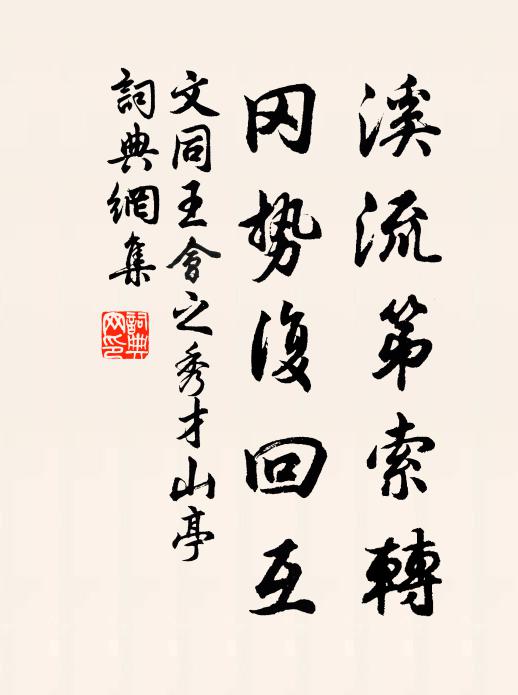 溪流第索轉
冈势復回互
文同王會之秀才山亭
詞典網集
詞典網印